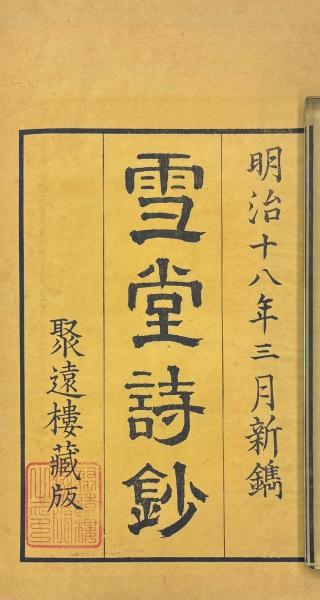 明治十八年三月新鐫
雪堂詩鈔
聚遠樓藏版